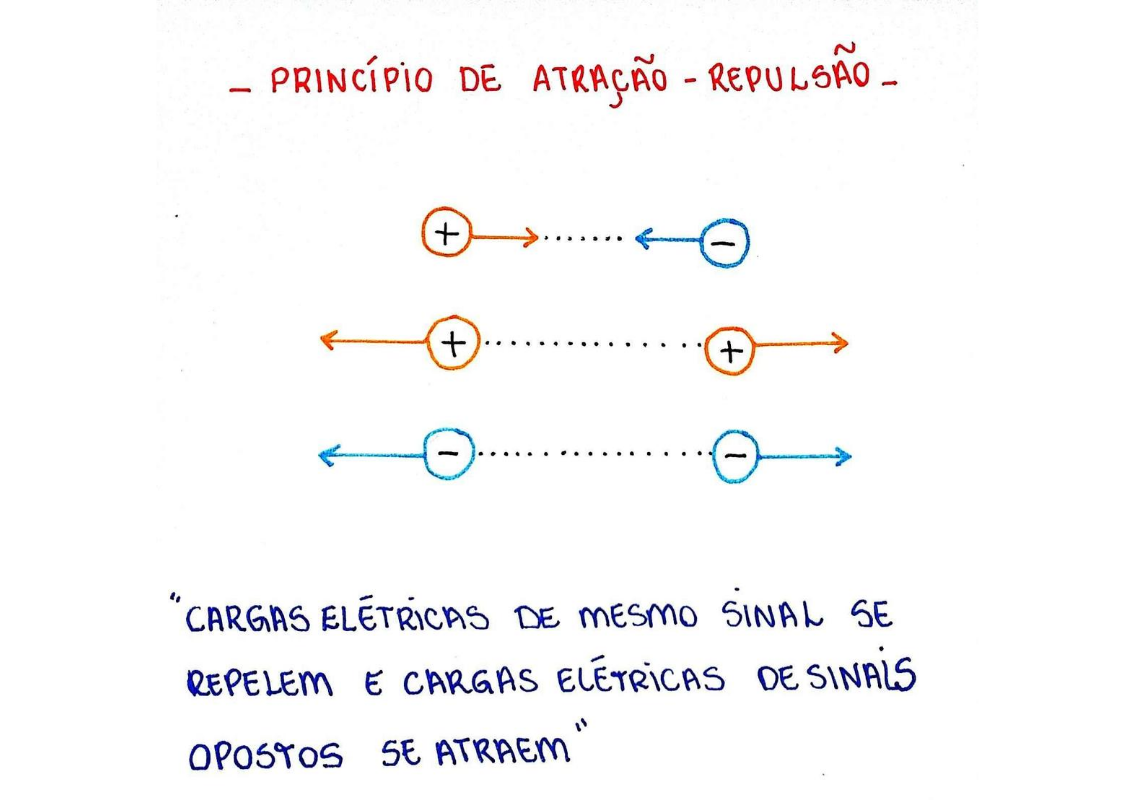 - PRINCÍPIO DE ATRAÇÃO - REPULSÃO -
+ -
+ +
- -
"CARGAS ELÉTRICAS DE MESMO SINAL SE
REPELEM E CARGAS ELÉTRICAS DE SINAIS
OPOSTOS SE ATRAEM"